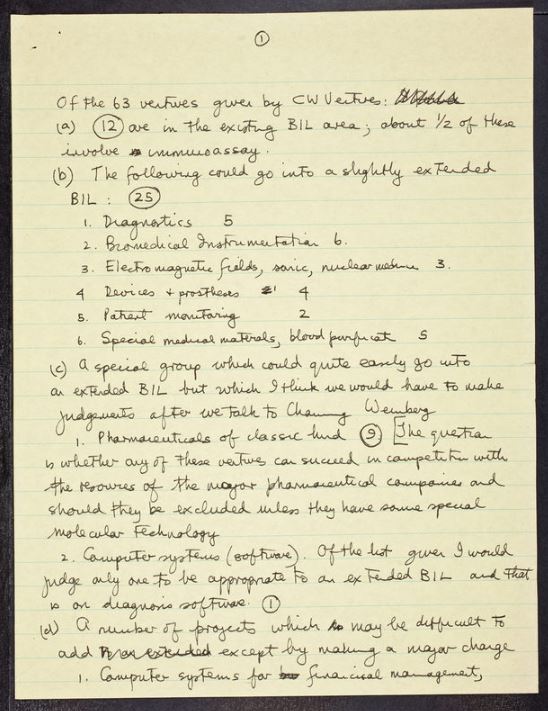 1
Of the 63 ventures given by CW Ventures:
(a) 12 are in the existing BIL area; about 1/2 of these
involve immunoassay.
(b) The following could go into a slightly extended
BIL : 25
1. Diagnostics 5
2. Biomedical Instrumentation 6.
3. Electromagnetic fields, sonic, nuclear medicine 3.
4 Devices + prostheses 4
5. Patient monitoring 2
6. Special medical materials, blood purificat 5
(c) A special group which could quite easily go into
an extended BIL but which I think we would have to make
judgements after we talk to Channing Weinberg
1. Pharmaceuticals of classic kind 9 [The question
is whether any of these ventures can succeed in competition with
the resources of the major pharmaceutical companies and
should they be excluded unless they have some special
molecular technology
2. Computer systems (software). Of the list given I would
judge only one to be appropriate to an extended BIL and that
is on diagnosis software. 1
(d) A number of projects which may be difficult to
add except by making a major change
1. Computer systems for financial management,